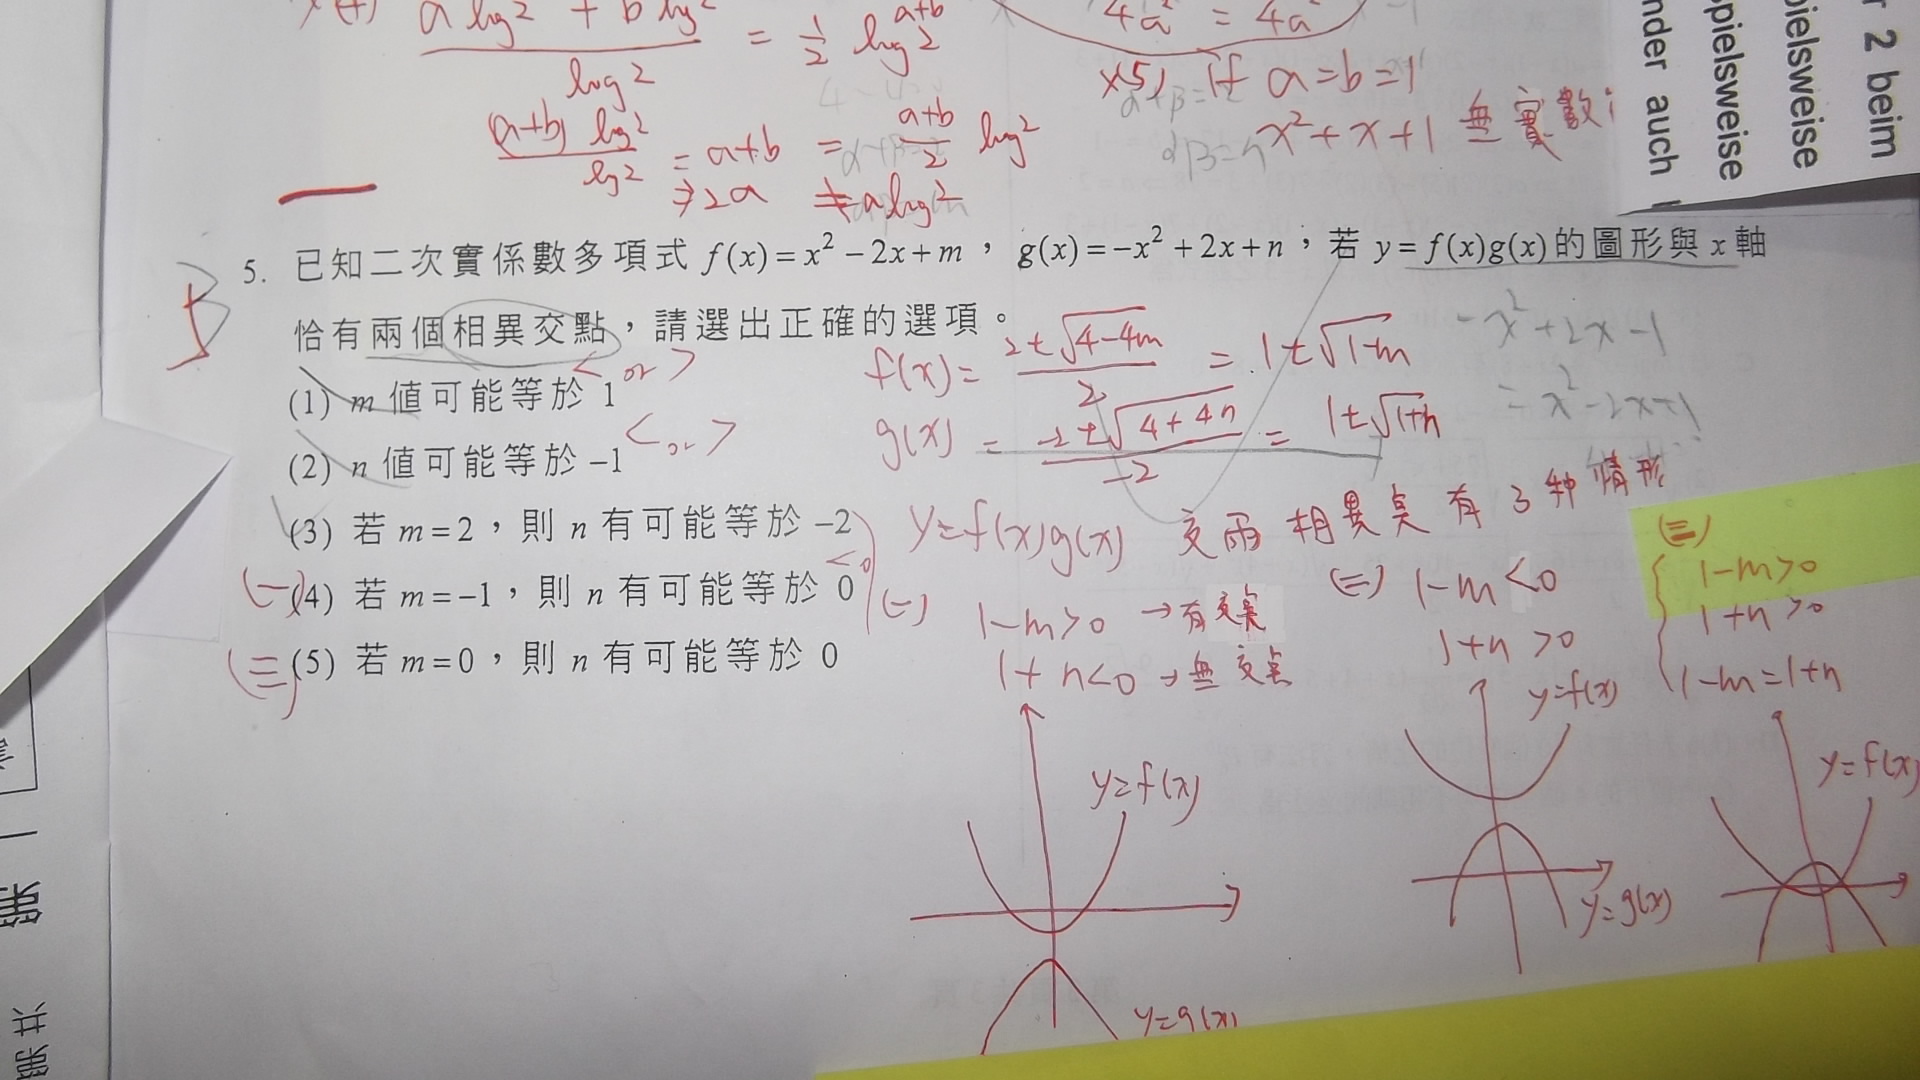 a log2 + b log2 / log2 = 1/2 log2^(a+b)
4a² = 4a
(a+b) log2 / log2 = a+b = (a+b)/2 log2
⇒ 2a ≠ a log2
×5) if a=b=1
x²+x+1 無實數
nder auch
pielsweise
pielsweise
r 2 beim
5. 已知二次實係數多項式 f(x)=x²−2x+m，g(x)=−x²+2x+n，若 y=f(x)g(x)的圖形與 x 軸
恰有兩個相異交點，請選出正確的選項。
(1) m 值可能等於 1 < or >
(2) n 值可能等於 −1 < or >
(3) 若 m=2，則 n 有可能等於 −2
(一) (4) 若 m=−1，則 n 有可能等於 0 <0
(三) (5) 若 m=0，則 n 有可能等於 0
f(x)= 2±√(4−4m) / 2 = 1±√(1−m)
g(x) = −2±√(4+4n) / −2 = 1±√(1+n)
−x²+2x−1
x²−2x+1
y=f(x)g(x) 交兩相異點有3种情形
(一) 1−m>0 →有交點
1+n<0 →無交點
(二) 1−m<0
1+n >0
(三)
1−m>0
1+n>0
1−m=1+n
y=f(x)
y=g(x)
y=f(x)
y=g(x)
y=f(x)